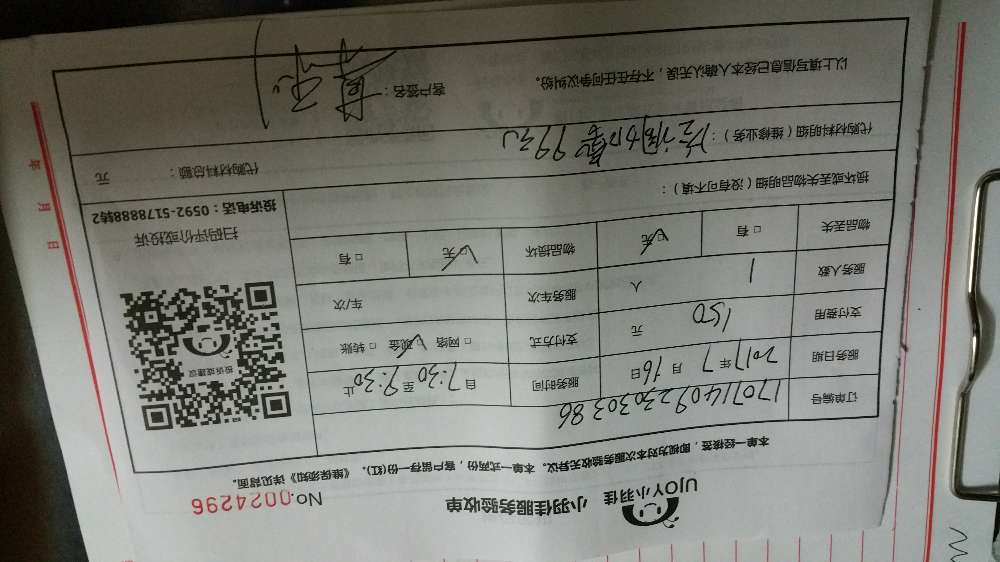 UJOY小羽佳
小羽佳服务验收单
No.0024296
本单一经接签，即视为对本次服务验收无异议。本单一式两份，客户留存一份(红)。《维保须知》详见背面。
订单编号 170714092303030386
服务日期 2017年7月16日 服务时间 自7:30至9:30止
支付费用 150元 支付方式 □网络 ☑现金 □转账
服务人数 1人 服务车次 车/次
物品丢失 □有 ☑无 物品损坏 ☑无 □有
损坏或丢失物品明细（没有可不填）：
投诉或建议
扫码评价或投诉
投诉电话：0592-5178888转2
代购材料明细（维修业务）：洁润加氟99元
代购材料总额： 元
以上填写信息已经本人确认无误，不存在任何争议纠纷。
客户签名：
年 月 日